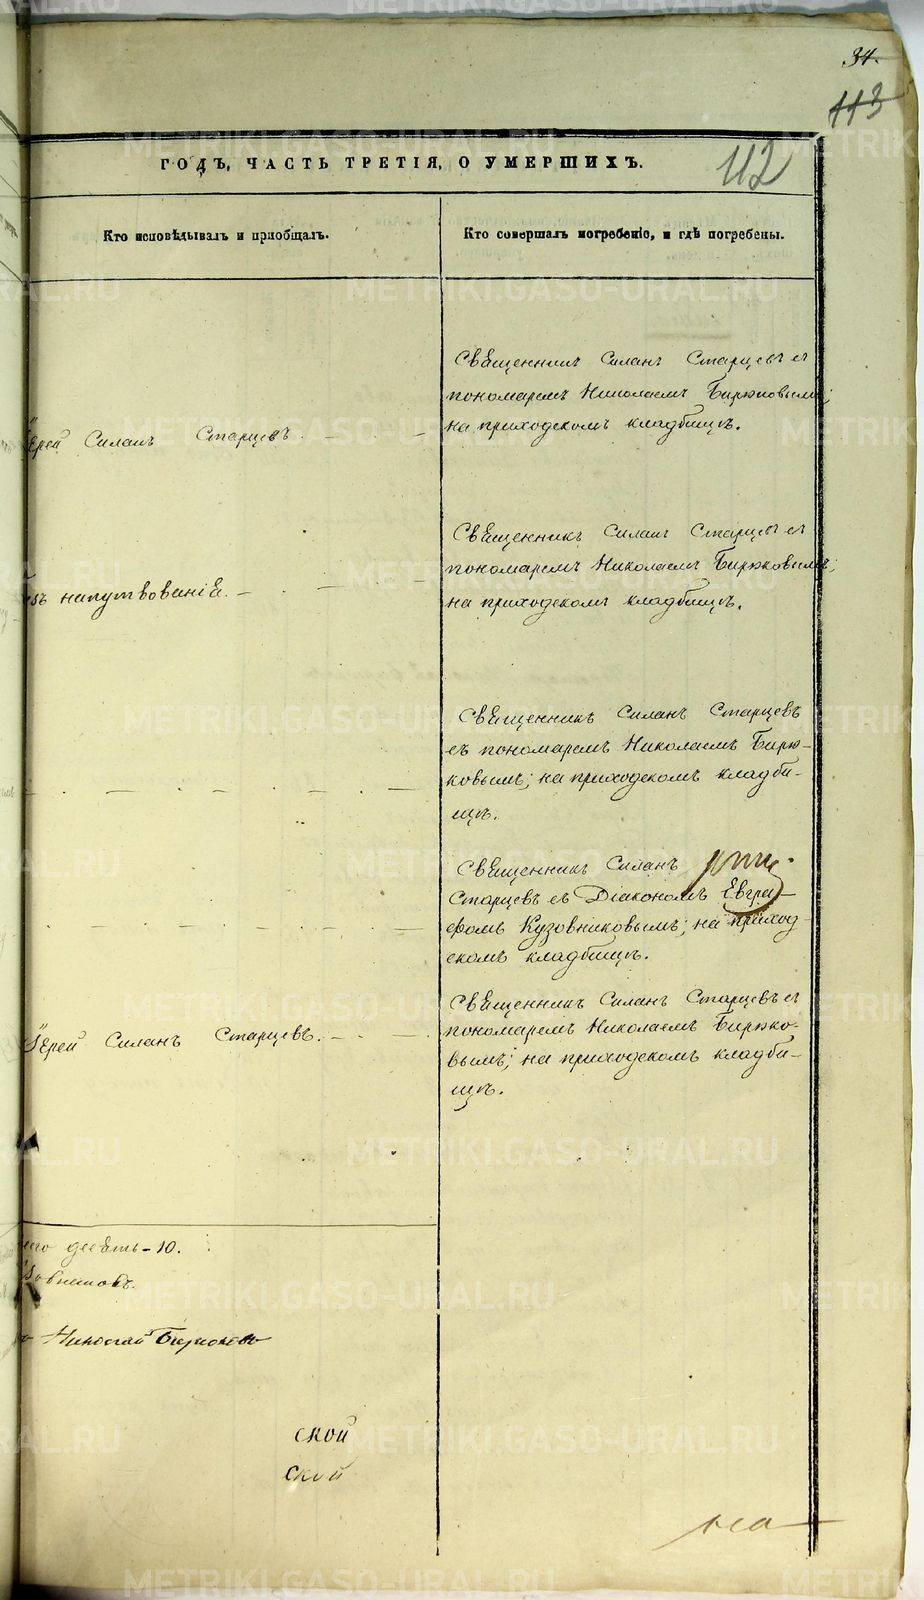 34.
113
112
ГОДЪ, ЧАСТЬ ТРЕТІЯ, О УМЕРШИХЪ.
Кто исповѣдывалъ и пріобщалъ.
Кто совершалъ погребеніе, и гдѣ погребены.
Священникъ Силанъ Старцевъ съ
пономаремъ Николаемъ Бирюковымъ;
на приходскомъ кладбищѣ.
Іерей Силанъ Старцевъ.
Священникъ Силанъ Старцевъ съ
пономаремъ Николаемъ Бирюковымъ;
на приходскомъ кладбищѣ.
напутвованія.
Священникъ Силанъ Старцевъ
съ пономаремъ Николаемъ Бирю-
ковымъ; на приходскомъ кладби-
щѣ.
Священникъ Силанъ
Старцевъ съ Діакономъ Евгра-
фомъ Кузовниковымъ; на приход
скомъ кладбищѣ.
Священникъ Силанъ Старцевъ съ
пономаремъ Николаемъ Бирюко-
вымъ; на приходскомъ кладби-
щѣ.
Іерей Силанъ Старцевъ.
десять-10.
Николай Бирюковъ
ской
ской
METRIKI.GASO-URAL.RU